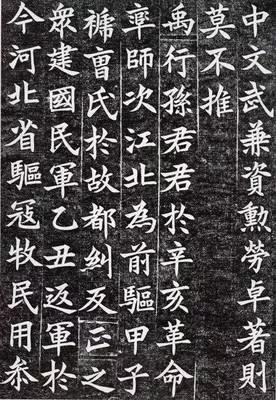 中文武兼資勳勞卓著則
莫不推
禹行孫君君於辛亥革命
率師次江北為前驅甲子
褫曺氏於故都糾反正之
眾建國民軍乙丑返軍於
今河北省驅冦牧民用叅